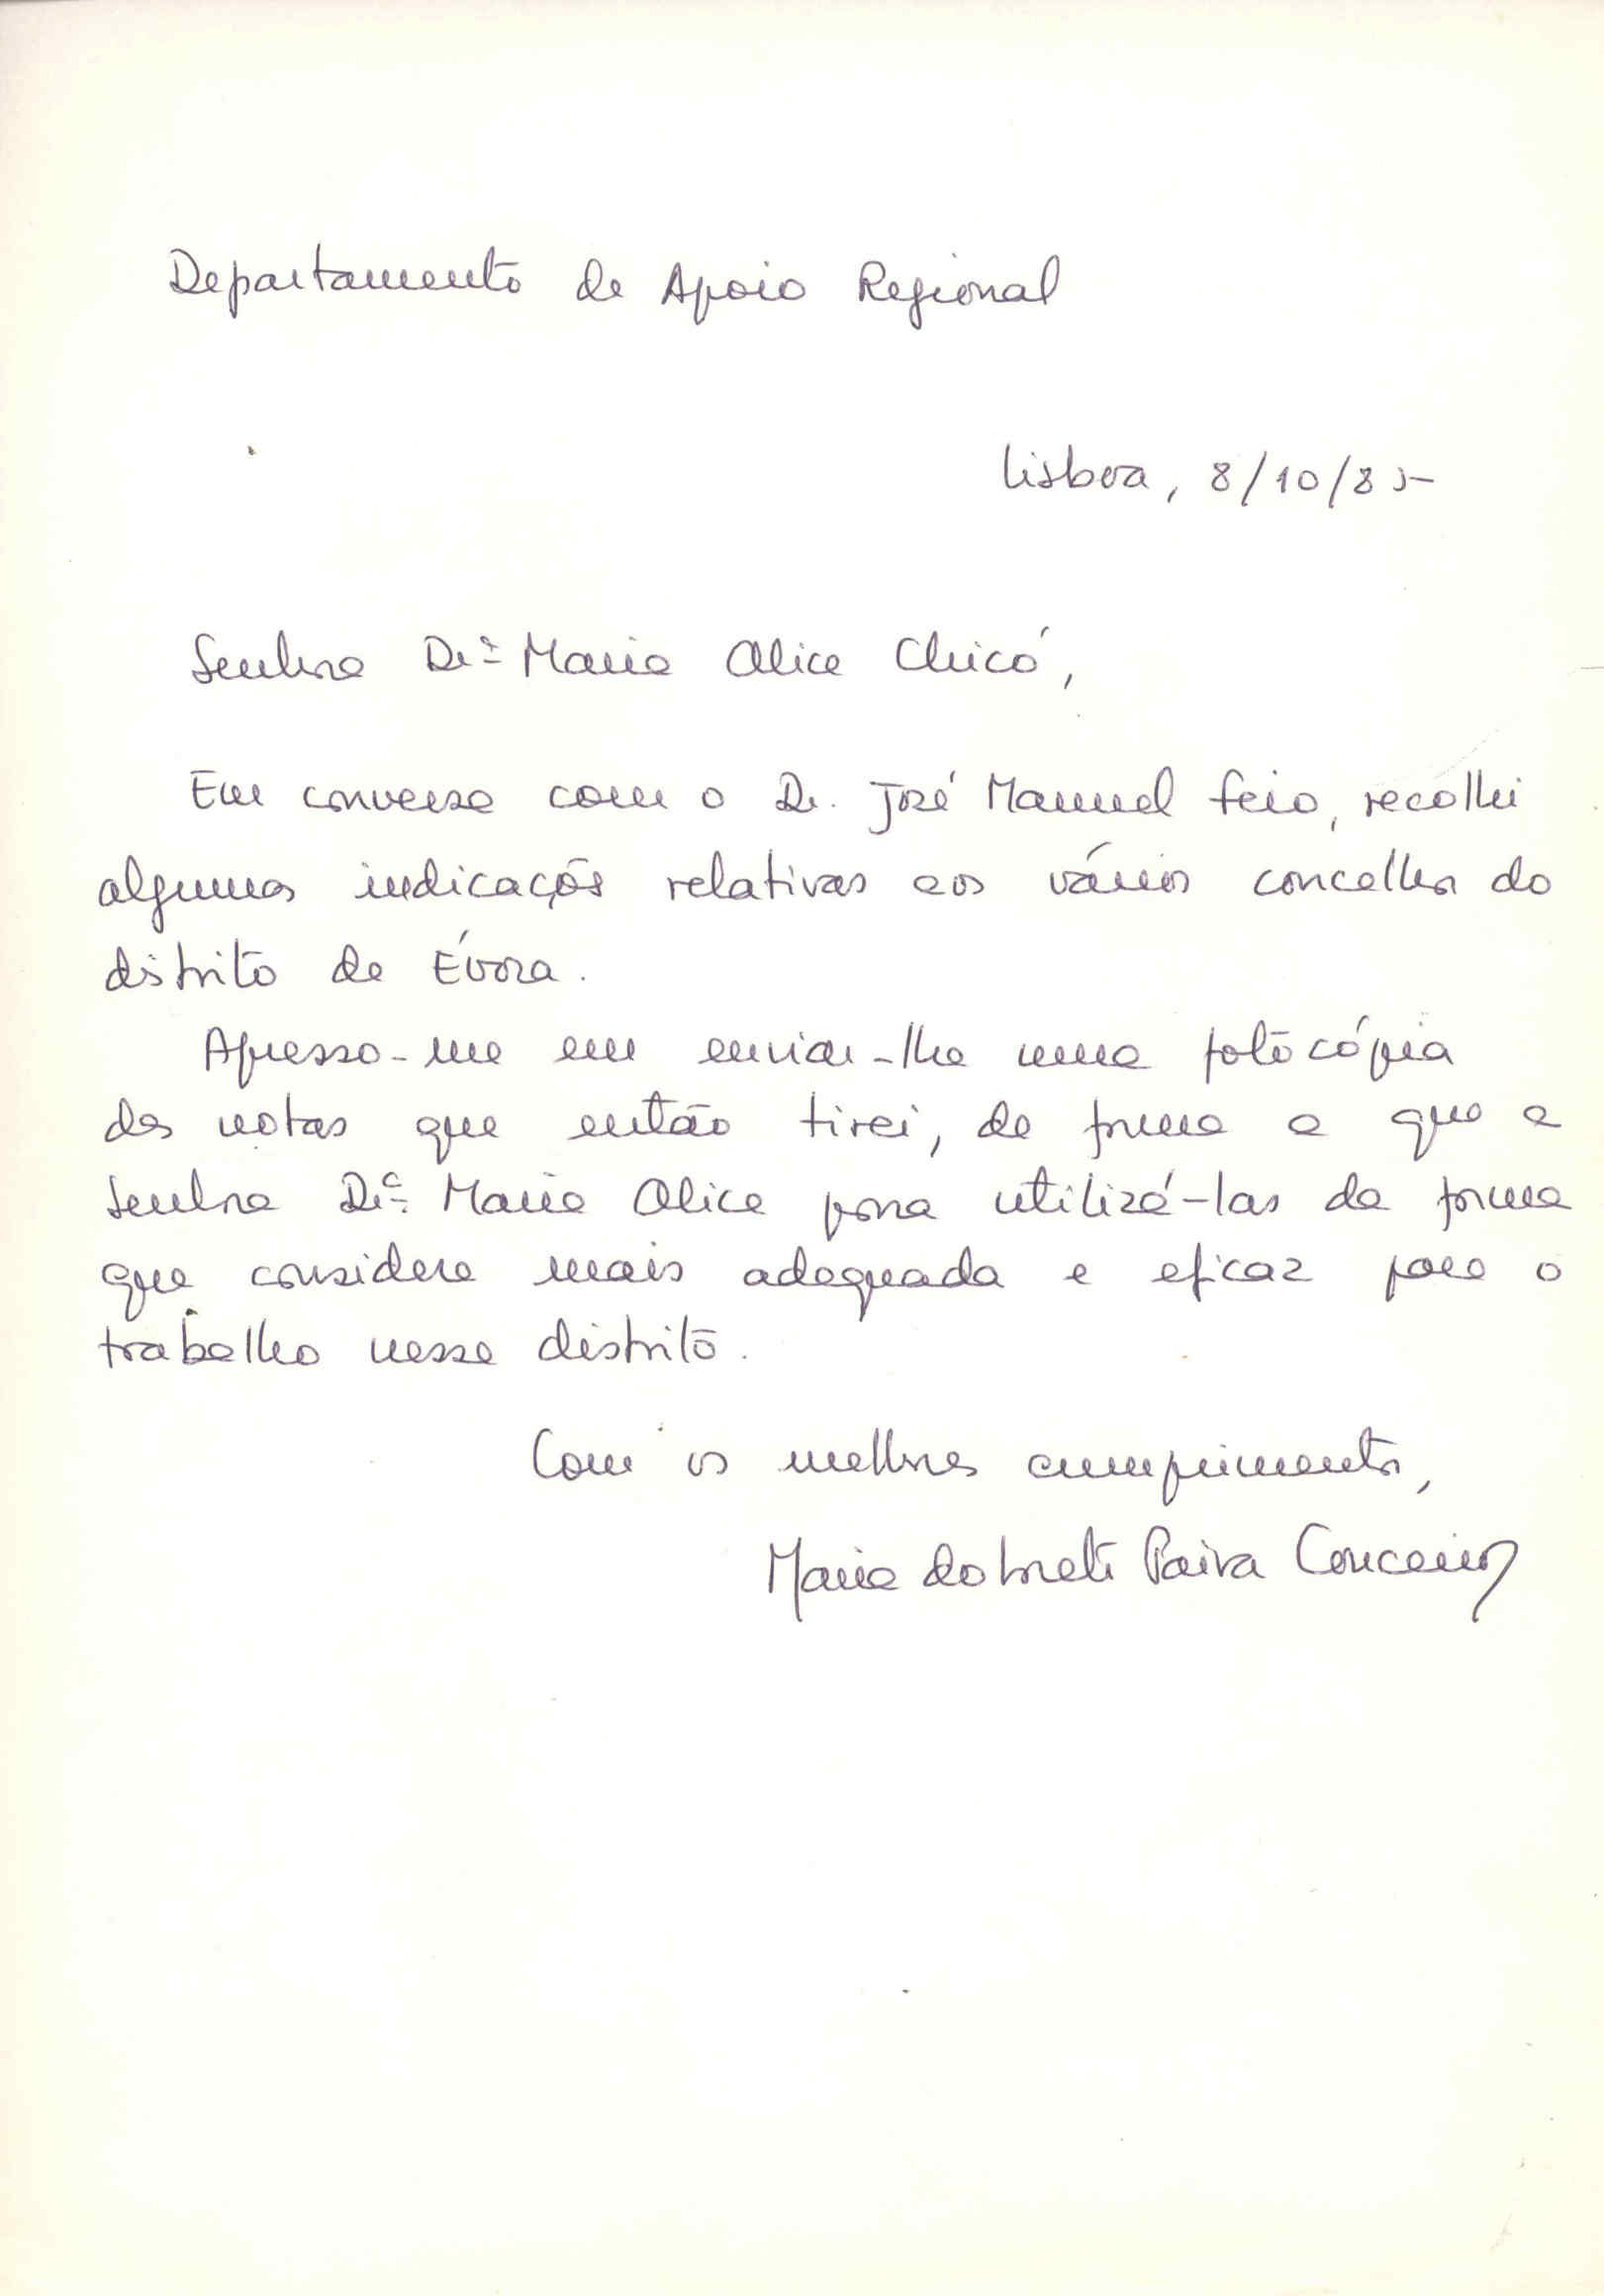 Departamento de Apoio Regional
Lisboa, 8/10/85
Senhora Drª Maria Alice Chicó,
Em conversa com o Dr. José Manuel Feio, recolhi
algumas indicações relativas aos vários concelhos do
distrito de Évora.
Apresso-me em enviar-lhe uma fotocópia
das notas que então tirei, de forma a que a
Senhora Drª Maria Alice possa utilizá-las da forma
que considere mais adequada e eficaz para o
trabalho nesse distrito.
Com os melhores cumprimentos,
Maria do Loreto Paiva Couceiro